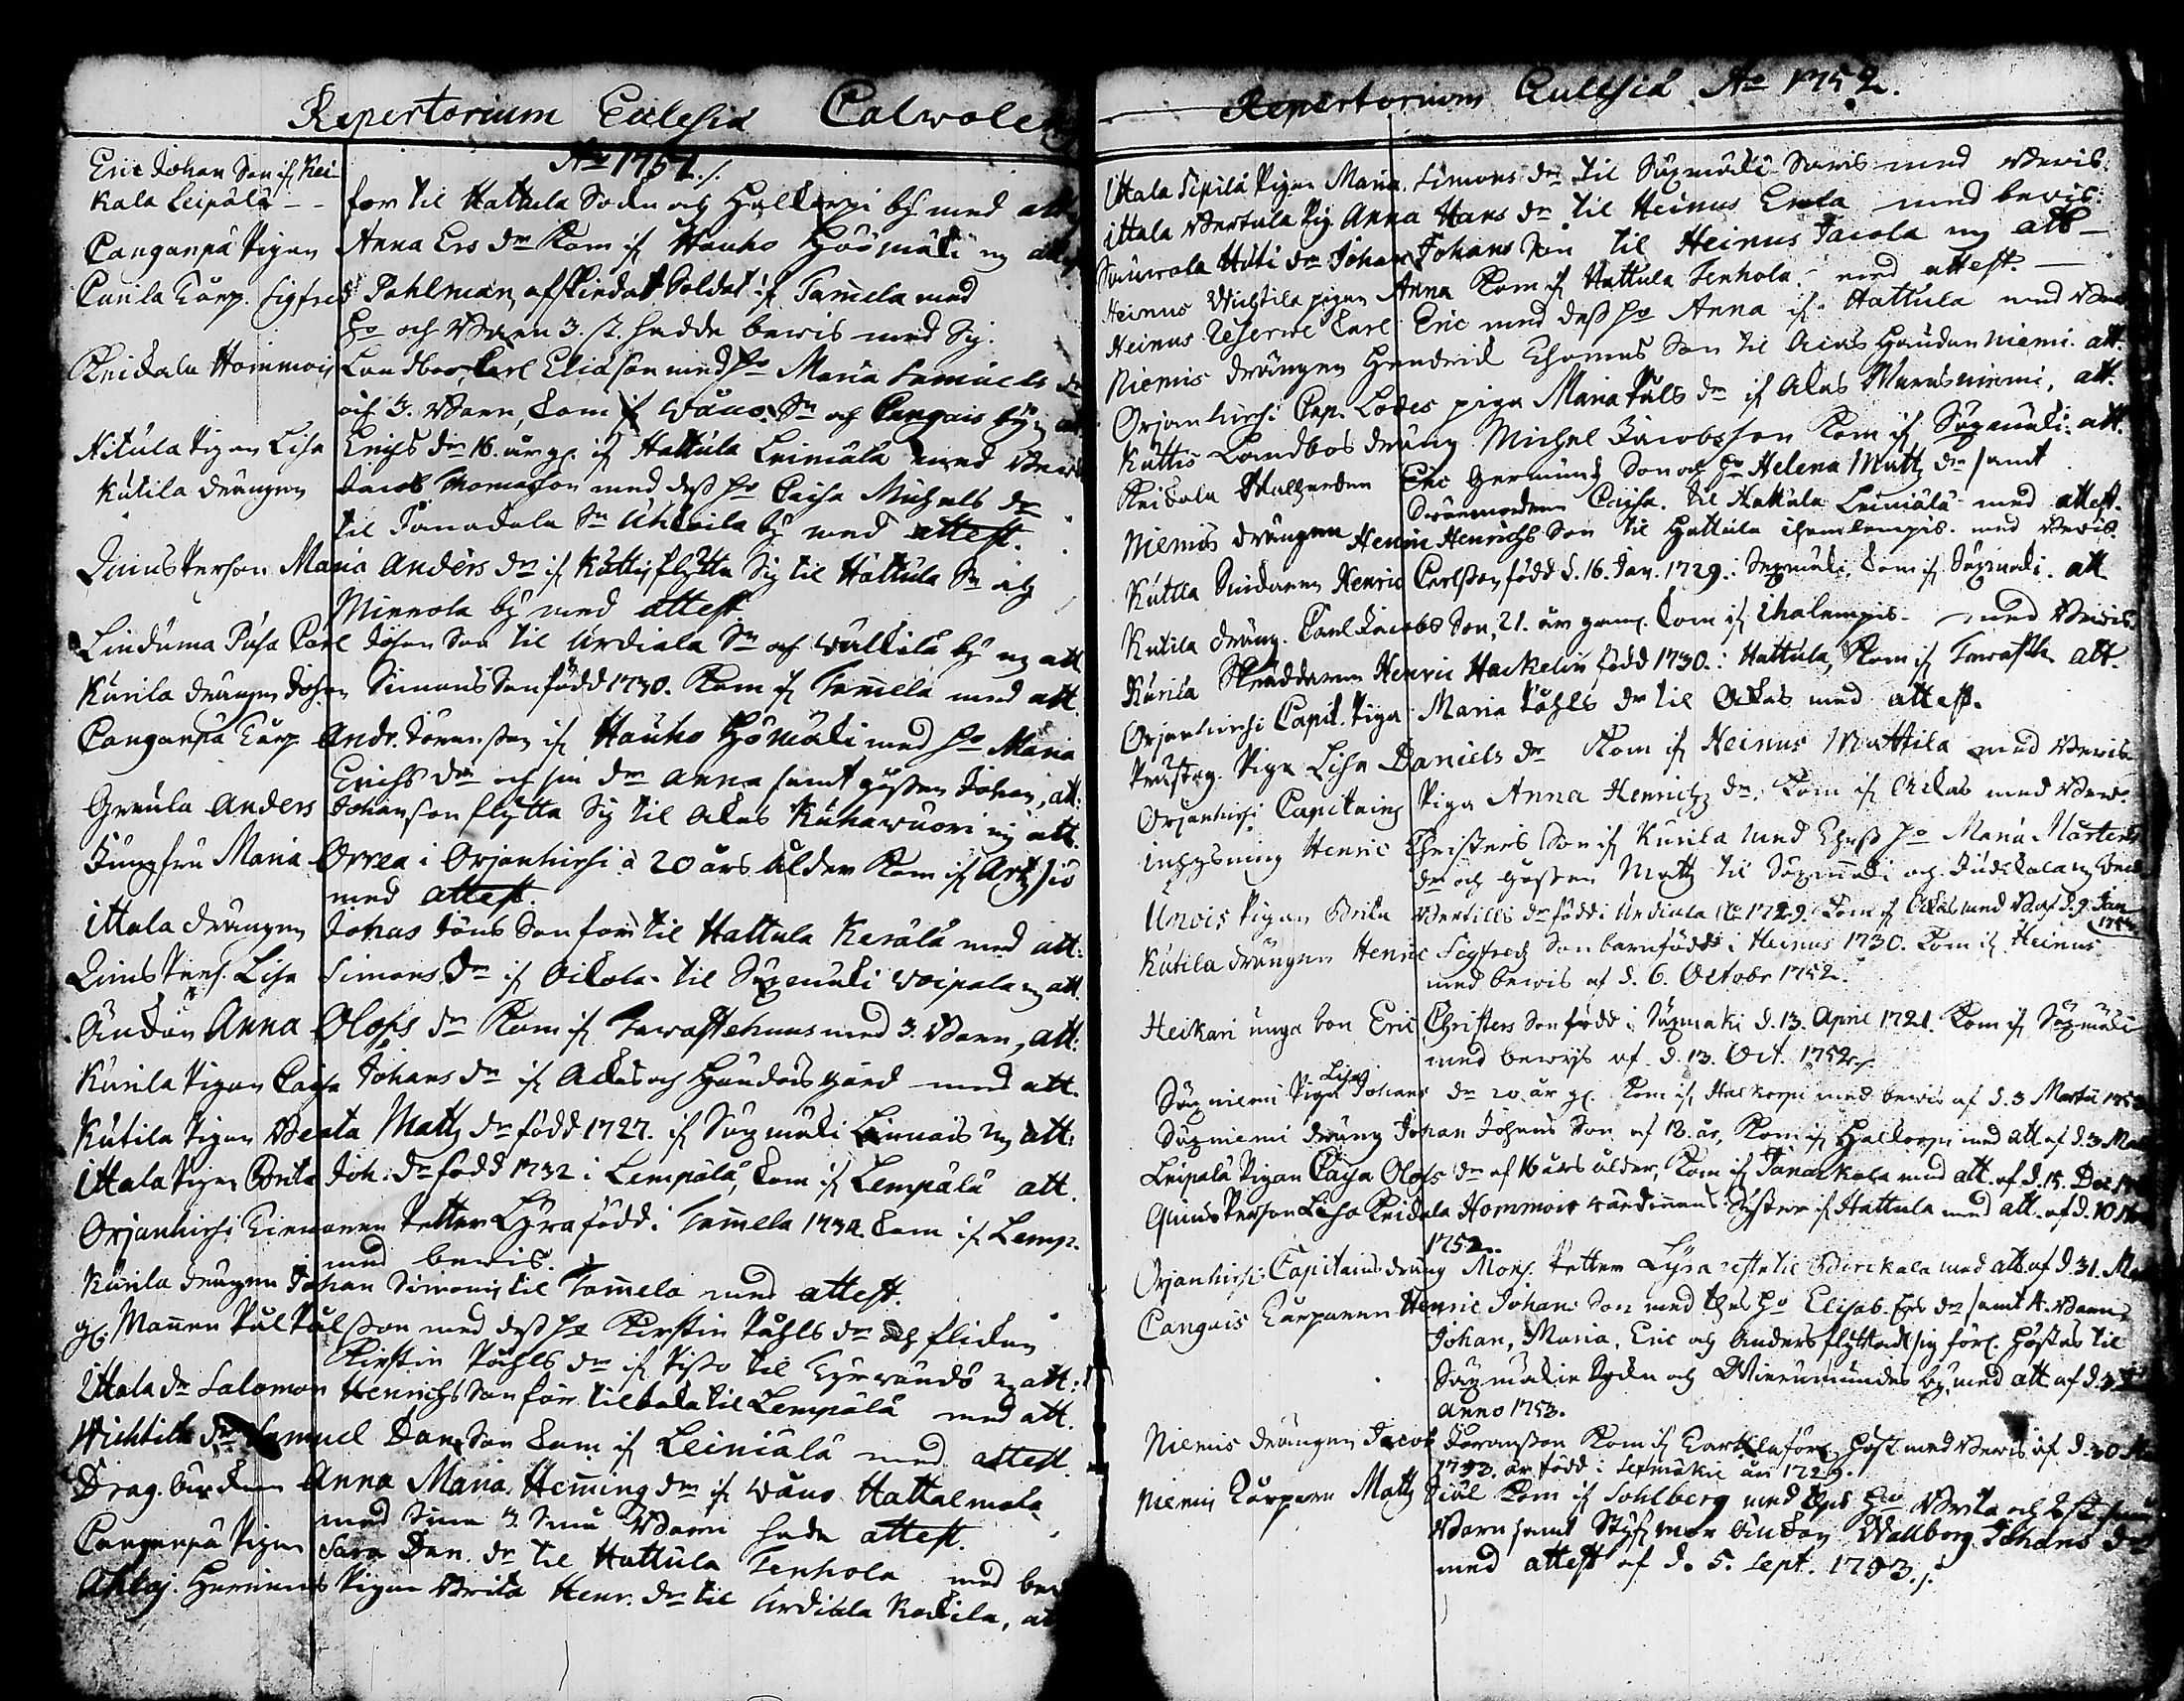 Repertorium Eclesiæ Calwolens
No 1751./.
Eric Johan Son if Kei-
kala Leipälä - - for til Hattula Sokn och Halkorpi by med att
Canganpä Pigan Anna Ers dr Kom if Hauho Hömäki m att
Cunila Torp. Sigfred Pahlman, afskedat Soldat if Tamela med
ho och Barn 3. st. hadde bewis med Sig.
Keikala Hommois Landbon, Carl Eliæson med ho Maria Samuels dr
och 3. Barn, kom if Wåno Sn och Cangais by m att
Nikula Pigan Lisa Erichs dr 16. år gl. if Hattula Leiniälä med Bewis
Kutila drängen Jacob Thomasson med dess ho Caisa Michels dr
til Janackala Sn Uhkoila by med attest.
Quins Person Maria Anders dr if Kuttis flytta Sig til Hattula Sn och
Mierola by med attest
Linduma Påsa Carl Johan Son til Urdiala Sn och Walkila by m att
Kurila drängen Johan Simons Son född 1730. Kom if Tamela med att.
Canganpä Torp Andr. Göransson if Hauho Hömäki med ho Maria
Erichs dr och sin dr Anna samt gossen Johan, att:
Greula Anders Johanson flytta Sig til Akas Kuhawuori m att.
Jungfru Maria Orrea i Orjanhirsi a 20 års ålder Kom if Artsjö
med attest.
ittala drängen Johas Jöns Son for til Hattula Kerälä med att:
Quins Pers. Lisa Simons dr if Oikola til Säxmäki Woipala m att
Änckan Anna Olofs dr Kom if Tawastehuus med 3. Barn, att:
Kurila Pigan Caisa Johans dr if Ackas och Haudois gård med att.
Kutila Pigan Beata Matts dr född 1727. if Säxmäki Linnais m att:
ittala Pigan Brita Joh. dr född 1732 i Lempälä, kom if Lempälä att.
Orjanhirsi Timanen Petter Lyra född i Tamela 1734. kom if Lemp.
med bewis.
Kurila drängen Johan Simons til Tamela med attest.
gl. Mannen Pål Pålsson med dess ho Kirstin Påhls dr och flickan
Kirstin Påhls dr if Piso til Tyrwändö m att:
ittala dr Salomon Henrichs Son för tilbaka til Lempälä med att.
Wichtilä dr Samuel Dans Son kom if Leiniälä med attest.
Drag. änckan Anna Maria Heming dr if Wåno Hattelmala
med Sina 3 Små Barn hade attest.
Canganpä Pigan Sara Dan. dr til Hattula Tenhola med bew
Ahlaj. Herrinnas Pigan Brita Henr. dr til Urdiala Kockila, at
Repertorium Eclesiæ No 1752.
ittala Sipilä Pigan Maria Simons dr til Säxmäki Saris med Bewis:
ittala Bertula Pig. Anna Hans dr til Heinus Erola med bewis:
Sauwala Huti dr Johan Johans Son til Heinus Jacola m att-
Heinus Wichtila pigan Anna Kom if Hattula Tenhola - med attest.
Heinus Reserve Carl Eric med dess ho Anna if Hattula med Bew
Niemis drängen Hendrick Thomas Son til Acas Haudanniemi. att.
Orjanhirsi Cap. Lodes piga Maria Påls dr if Akas Warasniemi, att.
Kuttis Landbos dräng Michel Jacobsson Kom if Säxmäki. att.
Keikala Wallherden Eric Germund Son och ho Helena Matts dr samt
Swärmodren Caisa. til Hattula Leiniälä med attest.
Niemis drängen Henric Henrichs Son til Hattula ihamlempis. med Bewis.
Kutila Smidaren Henric Carlsson född d. 16. Jan. 1729. i Sexmäki, kom if Säxmäki. att
Kutila dräng. Carl Jacobs Son, 21. år gam. kom if ihalempis. med Bewis.
Kurila Skräddaren Henric Hackelin född 1730. i Hattula, Kom if Tawasth att.
Orjanhirsi Capit. Piga Maria Påhls dr til Ackas med attest.
Prästeg. Piga Lisa Daniels dr Kom if Heinus Mattila med Bewis
Orjanhirsi Capitains Piga Anna Henrichs dr. Kom if Ackas med Bewis.
inhysning Henric Christers Son if Kurila med Thess ho Maria Mårtens
dr och gossen Matts til Säxmäki och Jutikala m bewis
Unois Pigan Brita Bertills dr född i Urdiala No 1729. Kom if Akas med B. af d. 9. Jan
1752
Kutila drängen Henric Sigfreds Son barnfödd i Heinus 1730. kom if Heinus
med bewis af d. 6. Octobr 1752.
Heikari unga bon Eric Christers Son född i Säxmäki d. 13. April 1721. Kom if Säxmäki
med bewijs af d. 13. Oct. 1752./.
Lisa
Säxniemi Piga Johans dr 20 år gl. Kom if Halkorpi med bewis af d. 3 Martii 1752
Säxniemi dräng Johan Johans Son af 18. år, Kom if Halkorpi med att af d. 3 Mar
Leipälä Pigan Caysa Olofs dr af 16 års ålder, Kom if Janackala med att. af d. 15. Dec 17
Quins Person Lisa Keikala Hommois wärdinnans Syster if Hattula med att. af d. 10 No
1752.
Orjanhirsi Capitains dräng Mons. Petter Lyra reste til Birckala med att af d. 31. Ma
Cangais Torparen Henric Johans Son med thess ho Elisab. Ers dr samt 4. Barn,
Johan, Maria, Eric och Anders flyttade sig förl. höstas til
Säxmäkie Sokn och Wierumundis by, med att af d. 3
anno 1753.
Niemis drängen Jacob Göransson Kom if Tarttla förl. höst med Bewis af d. 30 Ma
1753. är född i Sexmäkie år 1729.
Niemis Torparen Matts Siul Kom if Sohlberg med thes ho Brita och 2 st små
Barn samt Styfmor änckan Wallborg Johans dr
med attest af d. 5. Sept. 1753./.